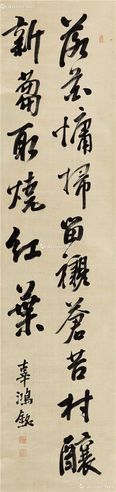 落花慵掃留襯蒼苔村釀
新蒭取燒紅葉
辜鴻銘